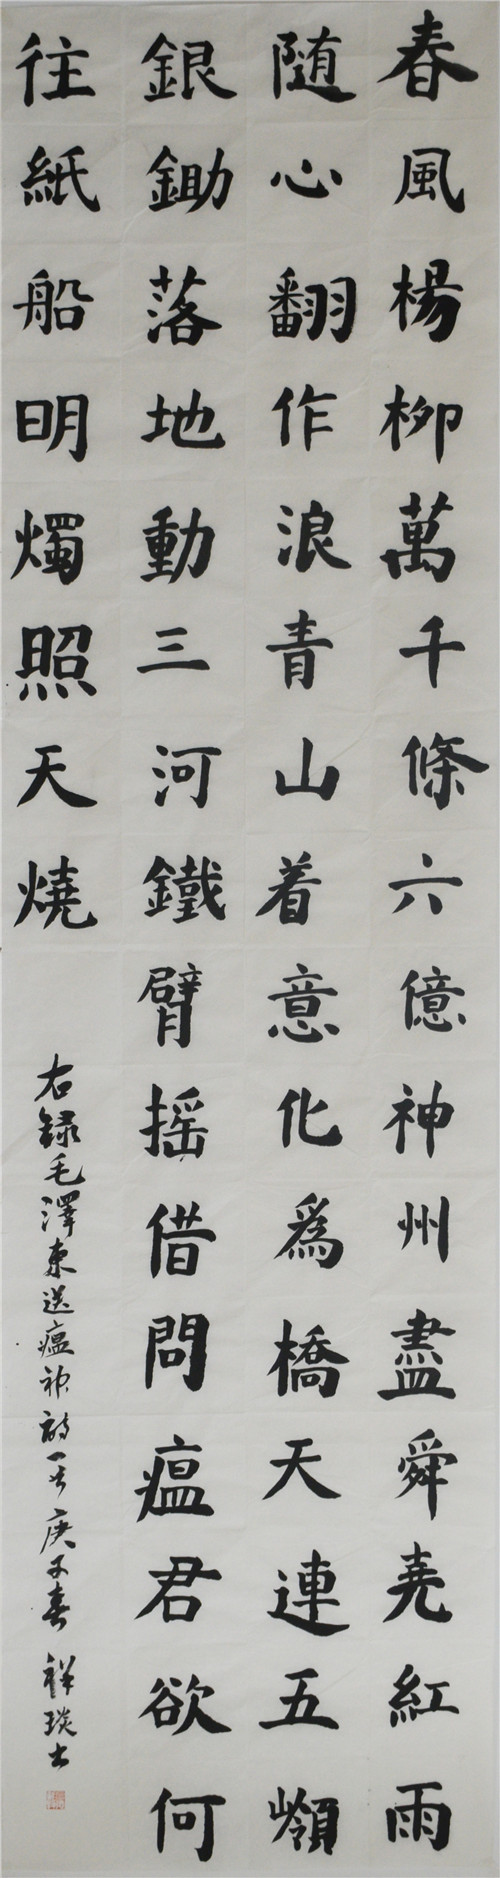 春風楊柳萬千條六億神州盡舜堯紅雨
随心翻作浪青山着意化為橋天連五嶺
銀鋤落地動三河鐵臂摇借問瘟君欲何
往紙船明燭照天燒
右録毛澤東送瘟神詩一首庚子春 祥琰